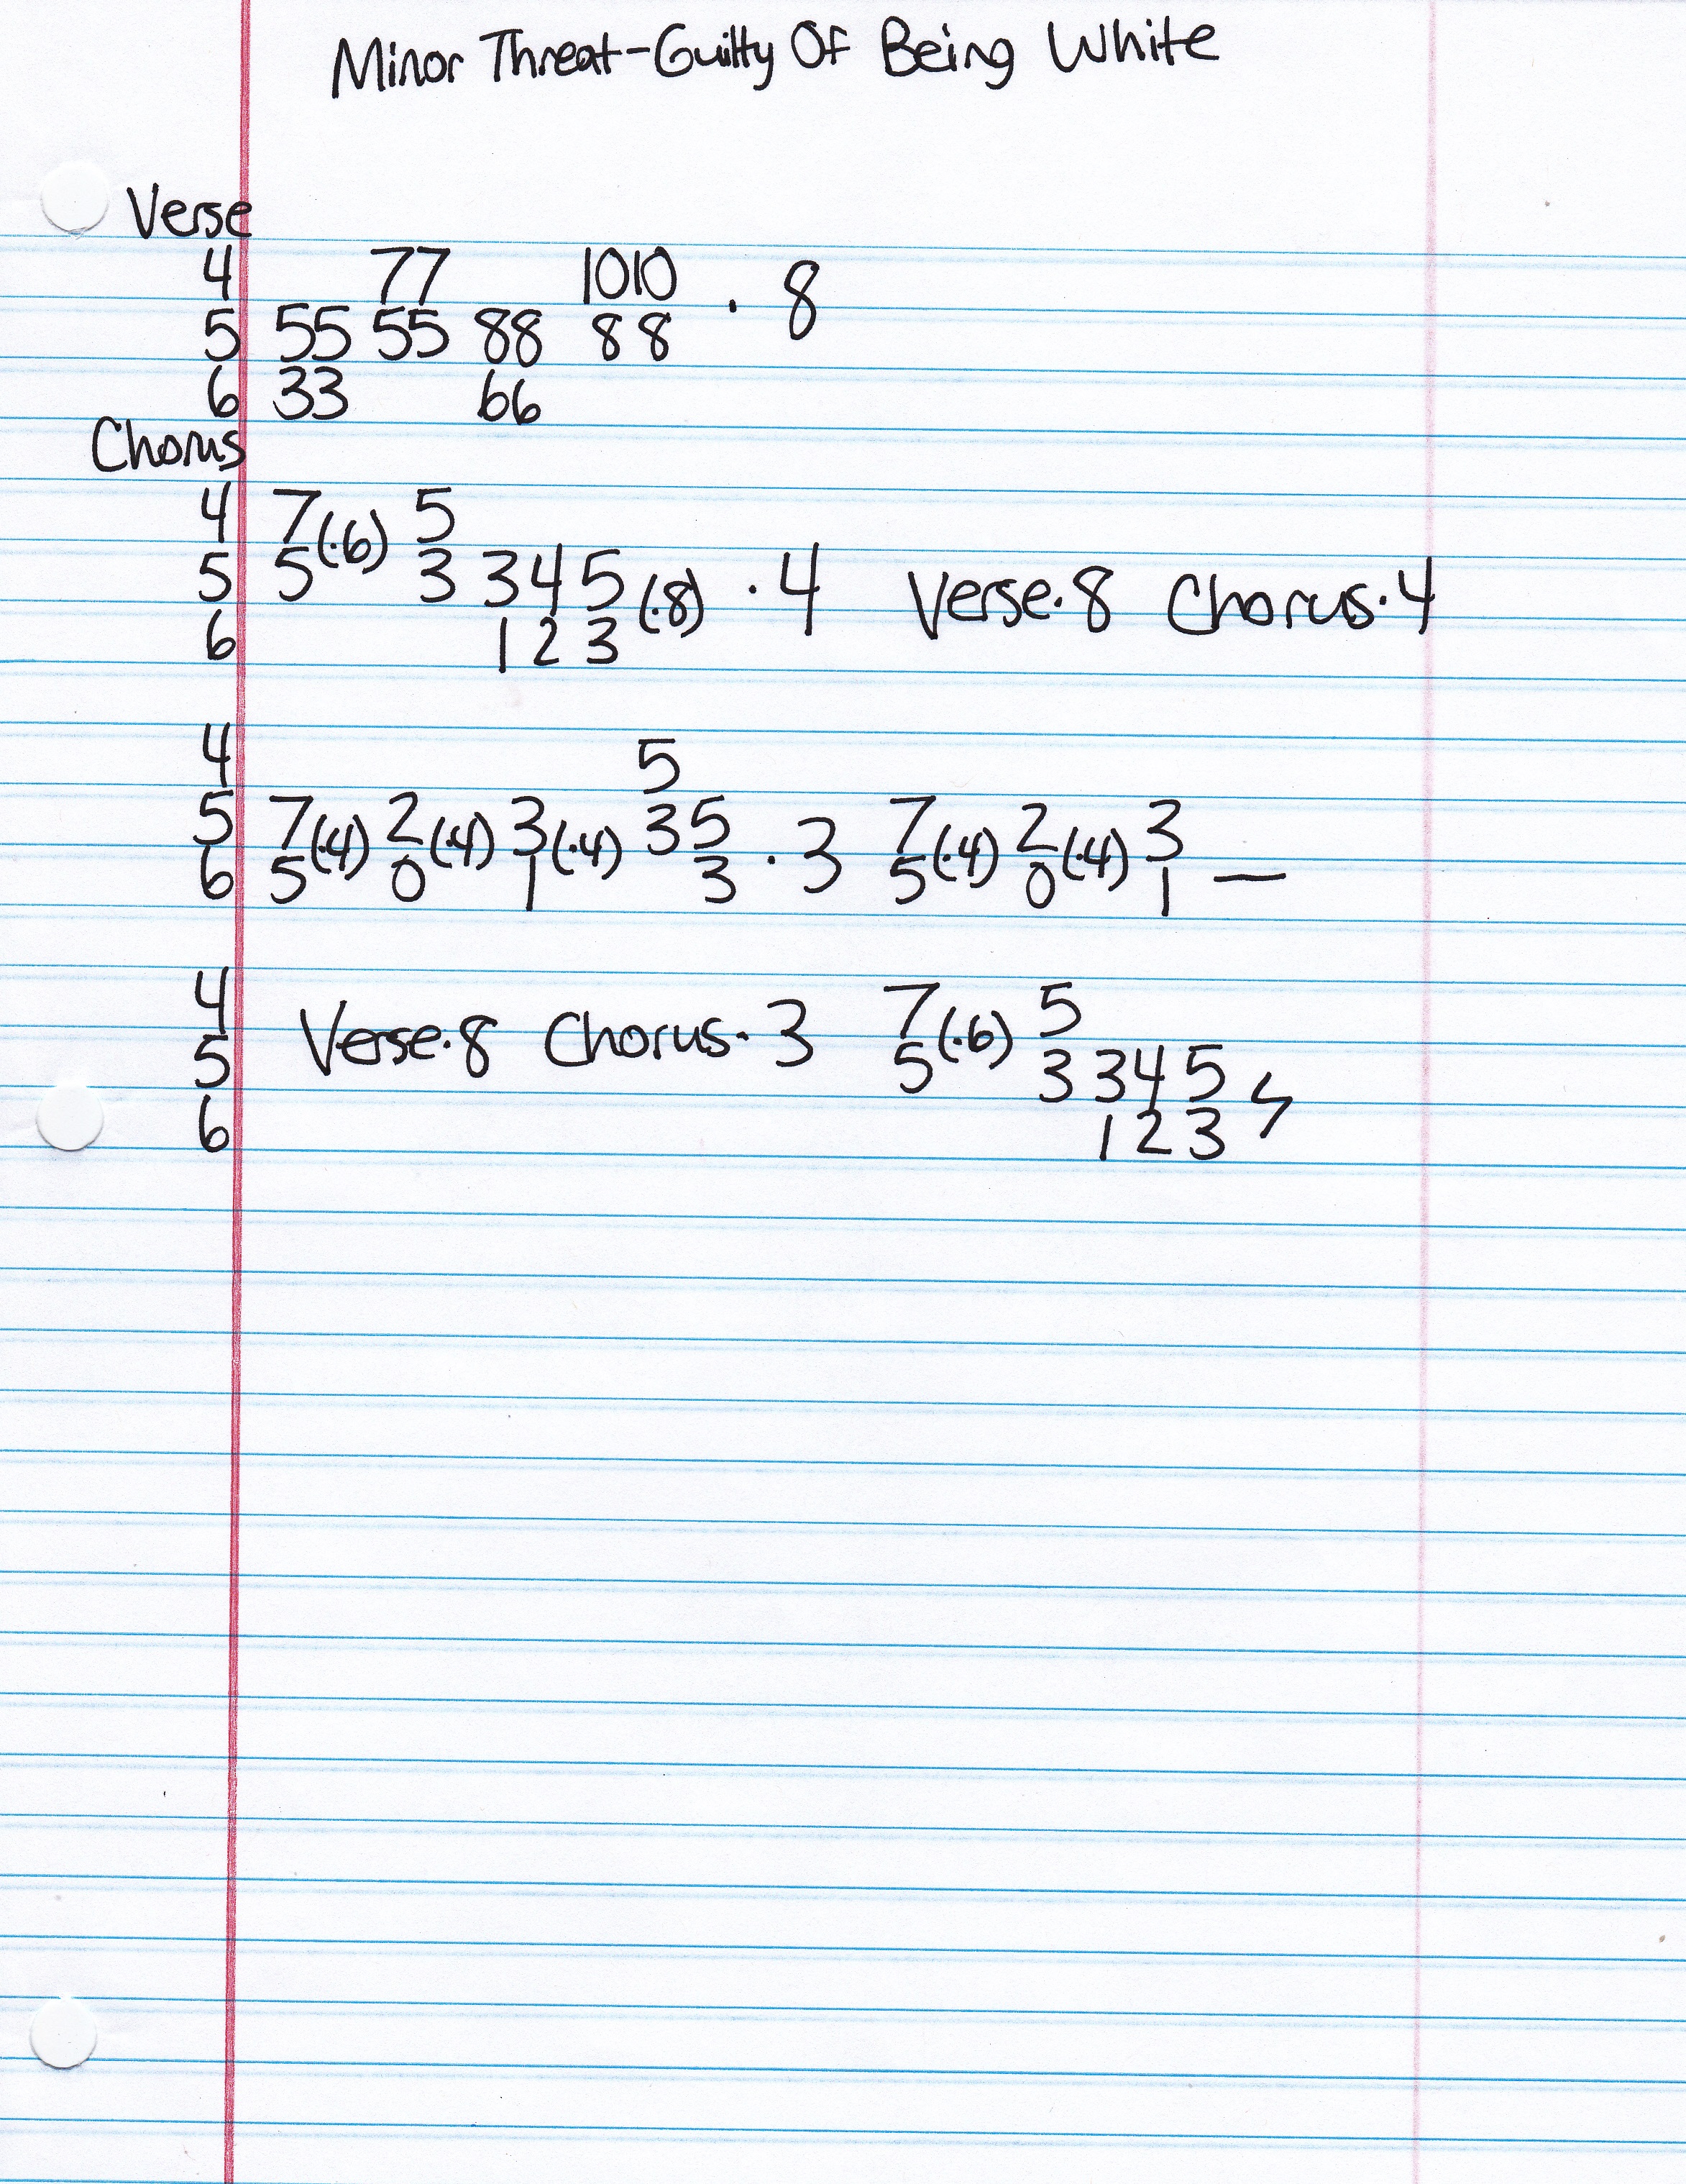 Minor Threat-Guilty Of Being White
Verse
4 77 1010 · 8
5 55 55 88 88
6 33 66
Chorus
4 7(·6) 5
5 5 3 3 4 5 (·8) · 4 Verse·8 Chorus·4
6 1 2 3
4 5
5 7(·4) 2(·4) 3(·4) 3 5 · 3 7(·4) 2(·4) 3
6 5 0 1 3 5 0 1 —
4 Verse·8 Chorus·3 7(·6) 5
5 5 3 3 4 5
6 1 2 3